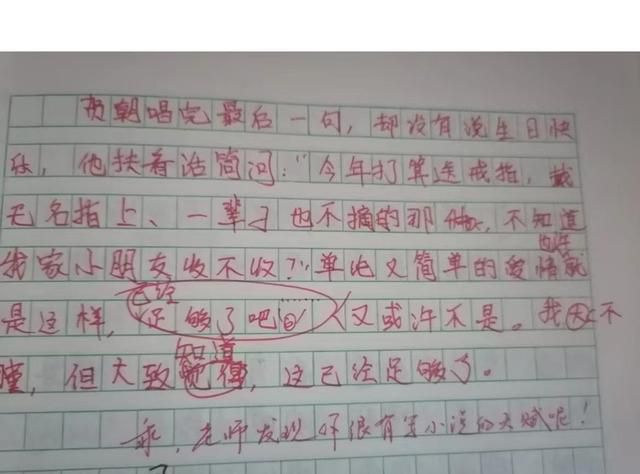 贺朝唱完最后一句，却没有说生日快
乐，他扶着话筒问："今年打算送戒指，戴
无名指上、一辈子也不摘的那种，不知道
我家小朋友收不收？"单纯又简单的爱情就
是这样，已经足够了吧。又或许不是。我不
懂，但大致知道觉得，这已经足够了。
乖，老师发现你很有写小说的天赋呢！